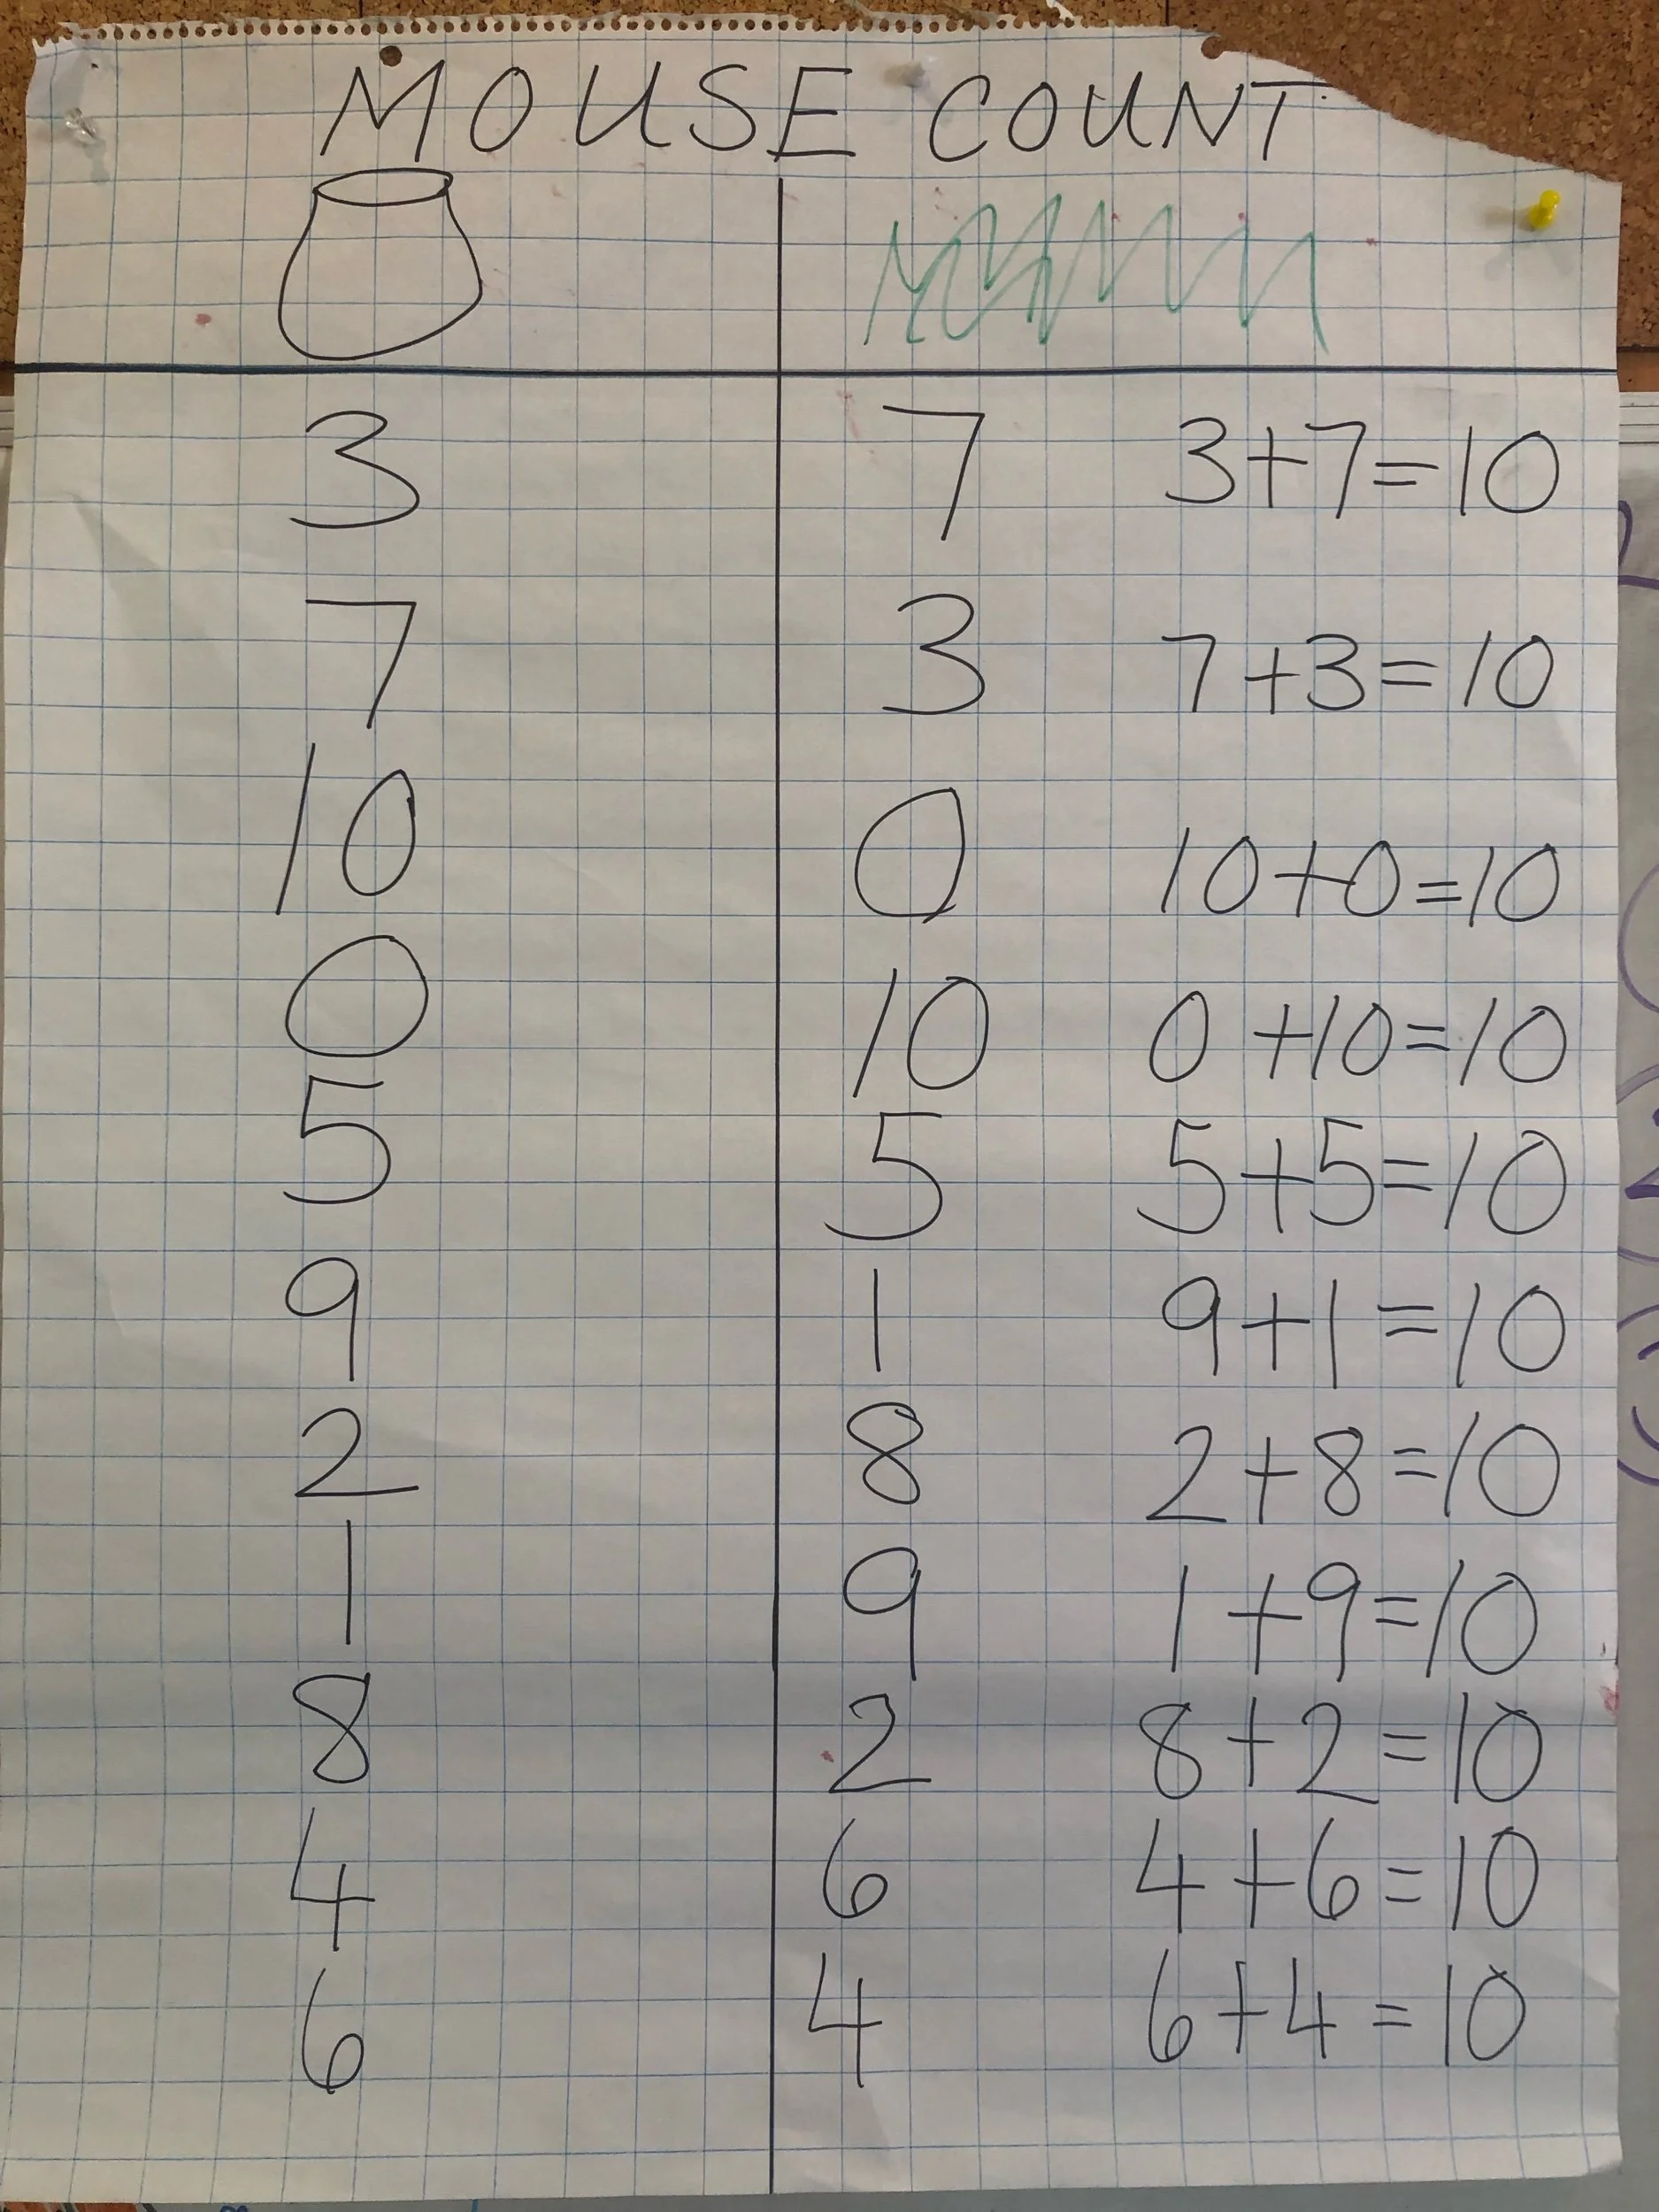 MOUSE COUNT
3 7 3+7=10
7 3 7+3=10
10 0 10+0=10
0 10 0+10=10
5 5 5+5=10
9 1 9+1=10
2 8 2+8=10
1 9 1+9=10
8 2 8+2=10
4 6 4+6=10
6 4 6+4=10